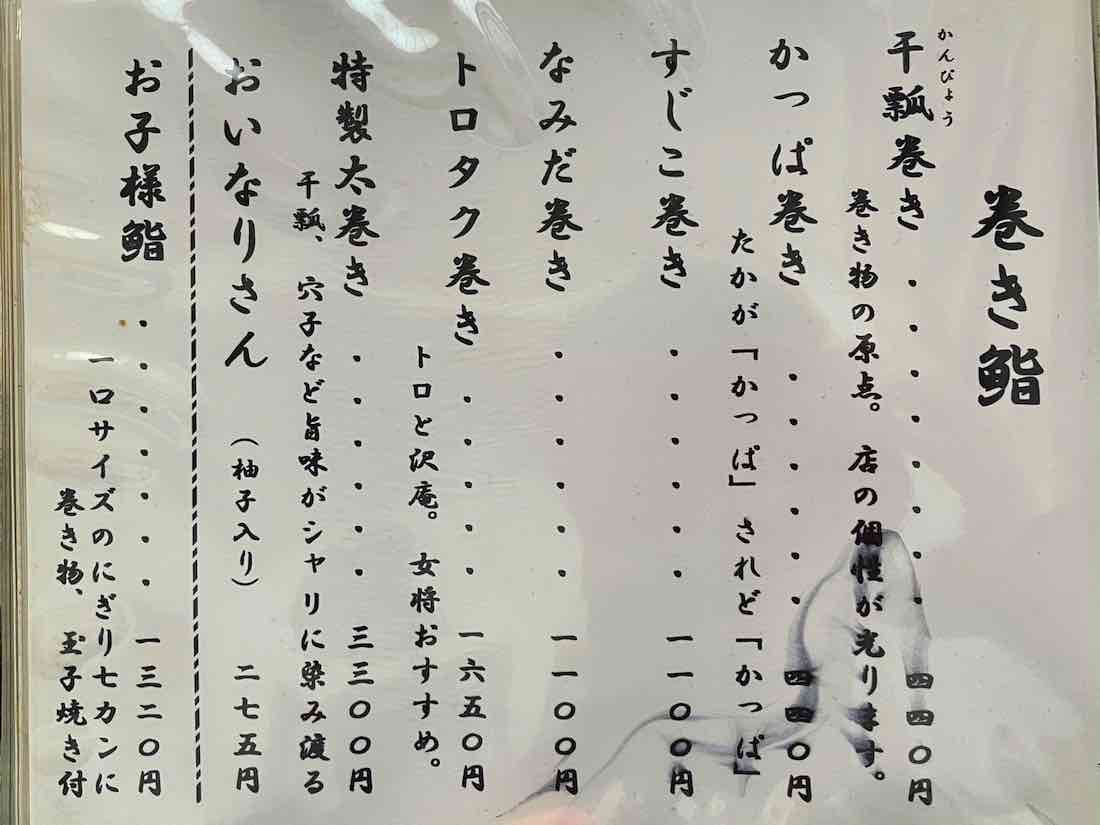 巻き鮨
かんぴょう
干瓢巻き・・・・・・・・四四〇円
巻き物の原点。店の個性が光ります。
かっぱ巻き・・・・・・四四〇円
たかが「かっぱ」されど「かっぱ」
すじこ巻き・・・・・・一一〇〇円
なみだ巻き・・・・・・一一〇〇円
トロタク巻き・・・・・一六五〇円
トロと沢庵。女将おすすめ。
特製太巻き・・・・・・三三〇〇円
干瓢、穴子など旨味がシャリに染み渡る
おいなりさん（柚子入り）二七五円
お子様鮨・・・・・・・一三二〇円
一口サイズのにぎり七カンに
巻き物、玉子焼き付